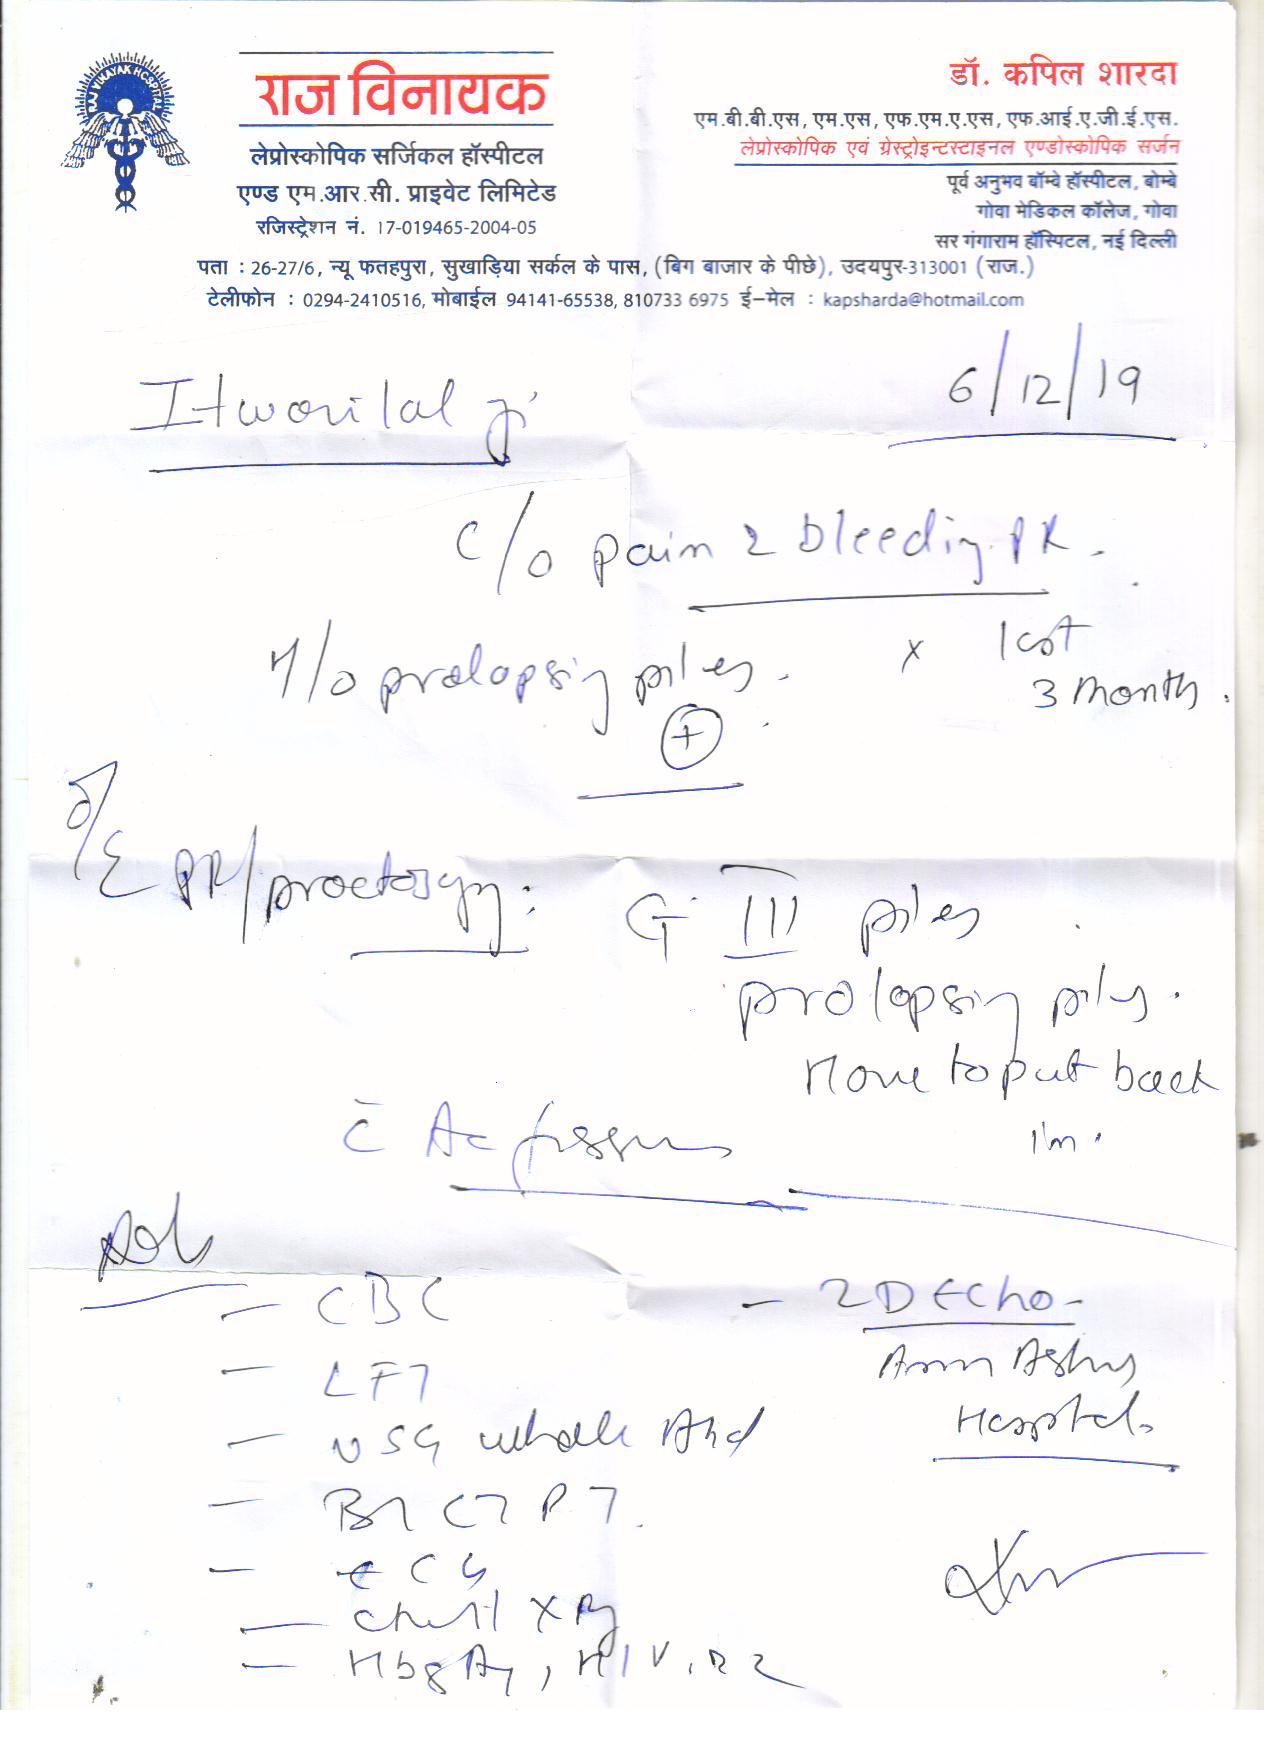 RAJ VINAYAK HOSPITAL
राज विनायक
लेप्रोस्कोपिक सर्जिकल हॉस्पीटल
एण्ड एम.आर.सी. प्राइवेट लिमिटेड
रजिस्ट्रेशन नं. 17-019465-2004-05
डॉ. कपिल शारदा
एम.बी.बी.एस, एम.एस, एफ.एम.ए.एस, एफ.आई.ए.जी.ई.एस.
लेप्रोस्कोपिक एवं ग्रेस्ट्रोइन्टस्टाइनल एण्डोस्कोपिक सर्जन
पूर्व अनुभव बॉम्बे हॉस्पीटल, बोम्बे
गोवा मेडिकल कॉलेज, गोवा
सर गंगाराम हॉस्पिटल, नई दिल्ली
पता : 26-27/6, न्यू फतहपुरा, सुखाड़िया सर्कल के पास, (बिग बाजार के पीछे), उदयपुर-313001 (राज.)
टेलीफोन : 0294-2410516, मोबाईल 94141-65538, 810733 6975 ई-मेल : kapsharda@hotmail.com
6/12/19
Itworilal ji
c/o pain & bleeding PR.
x last
3 month.
H/o prolapsing piles.
+
O/E PR/proctoscopy: G III piles
prolapsing piles.
Have to put back
in.
c̄ Ac fissure
Adv
- CBC
- LFT
- USG whole Abd
- BT CT PT.
- ECG
- chest X Ray
- HbsAg, HIV,
- 2D Echo-
Hospital.